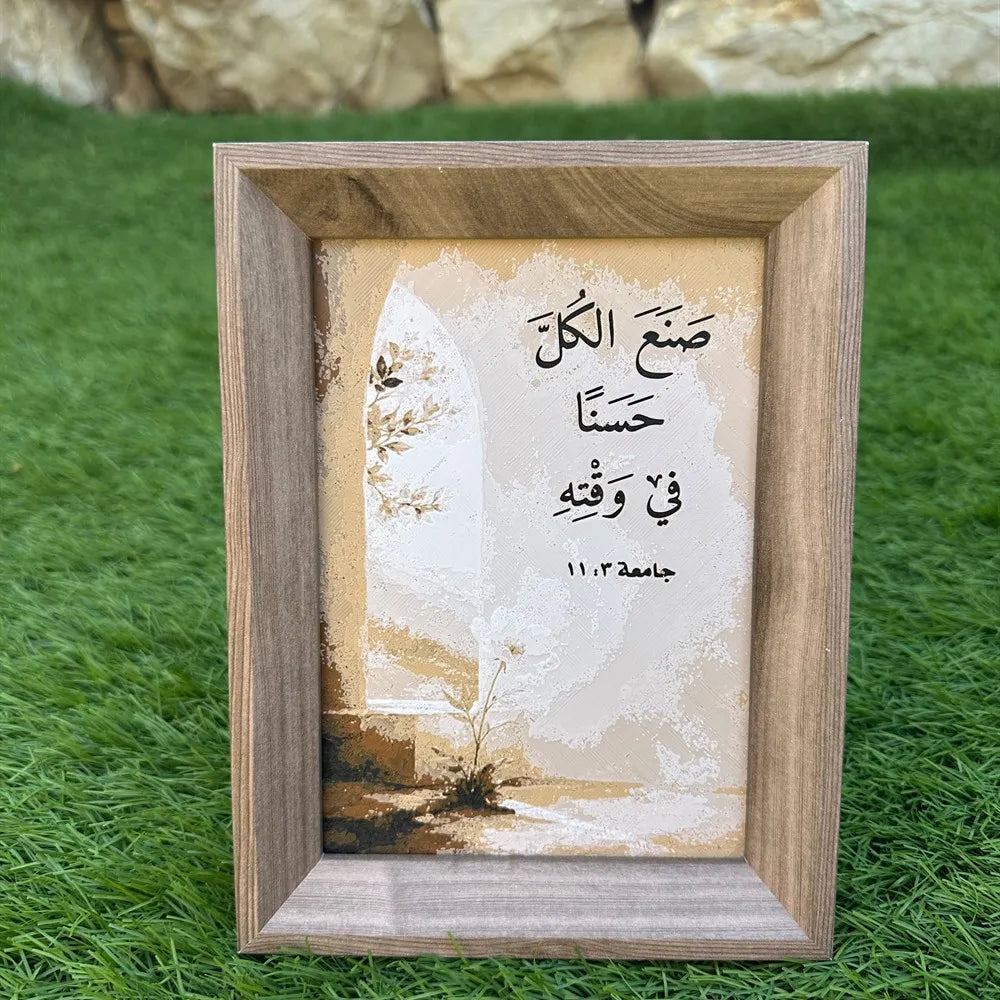 صَنَعَ الكُلَّ
حَسَنًا
فِي وَقْتِهِ
جامعة ٣: ١١